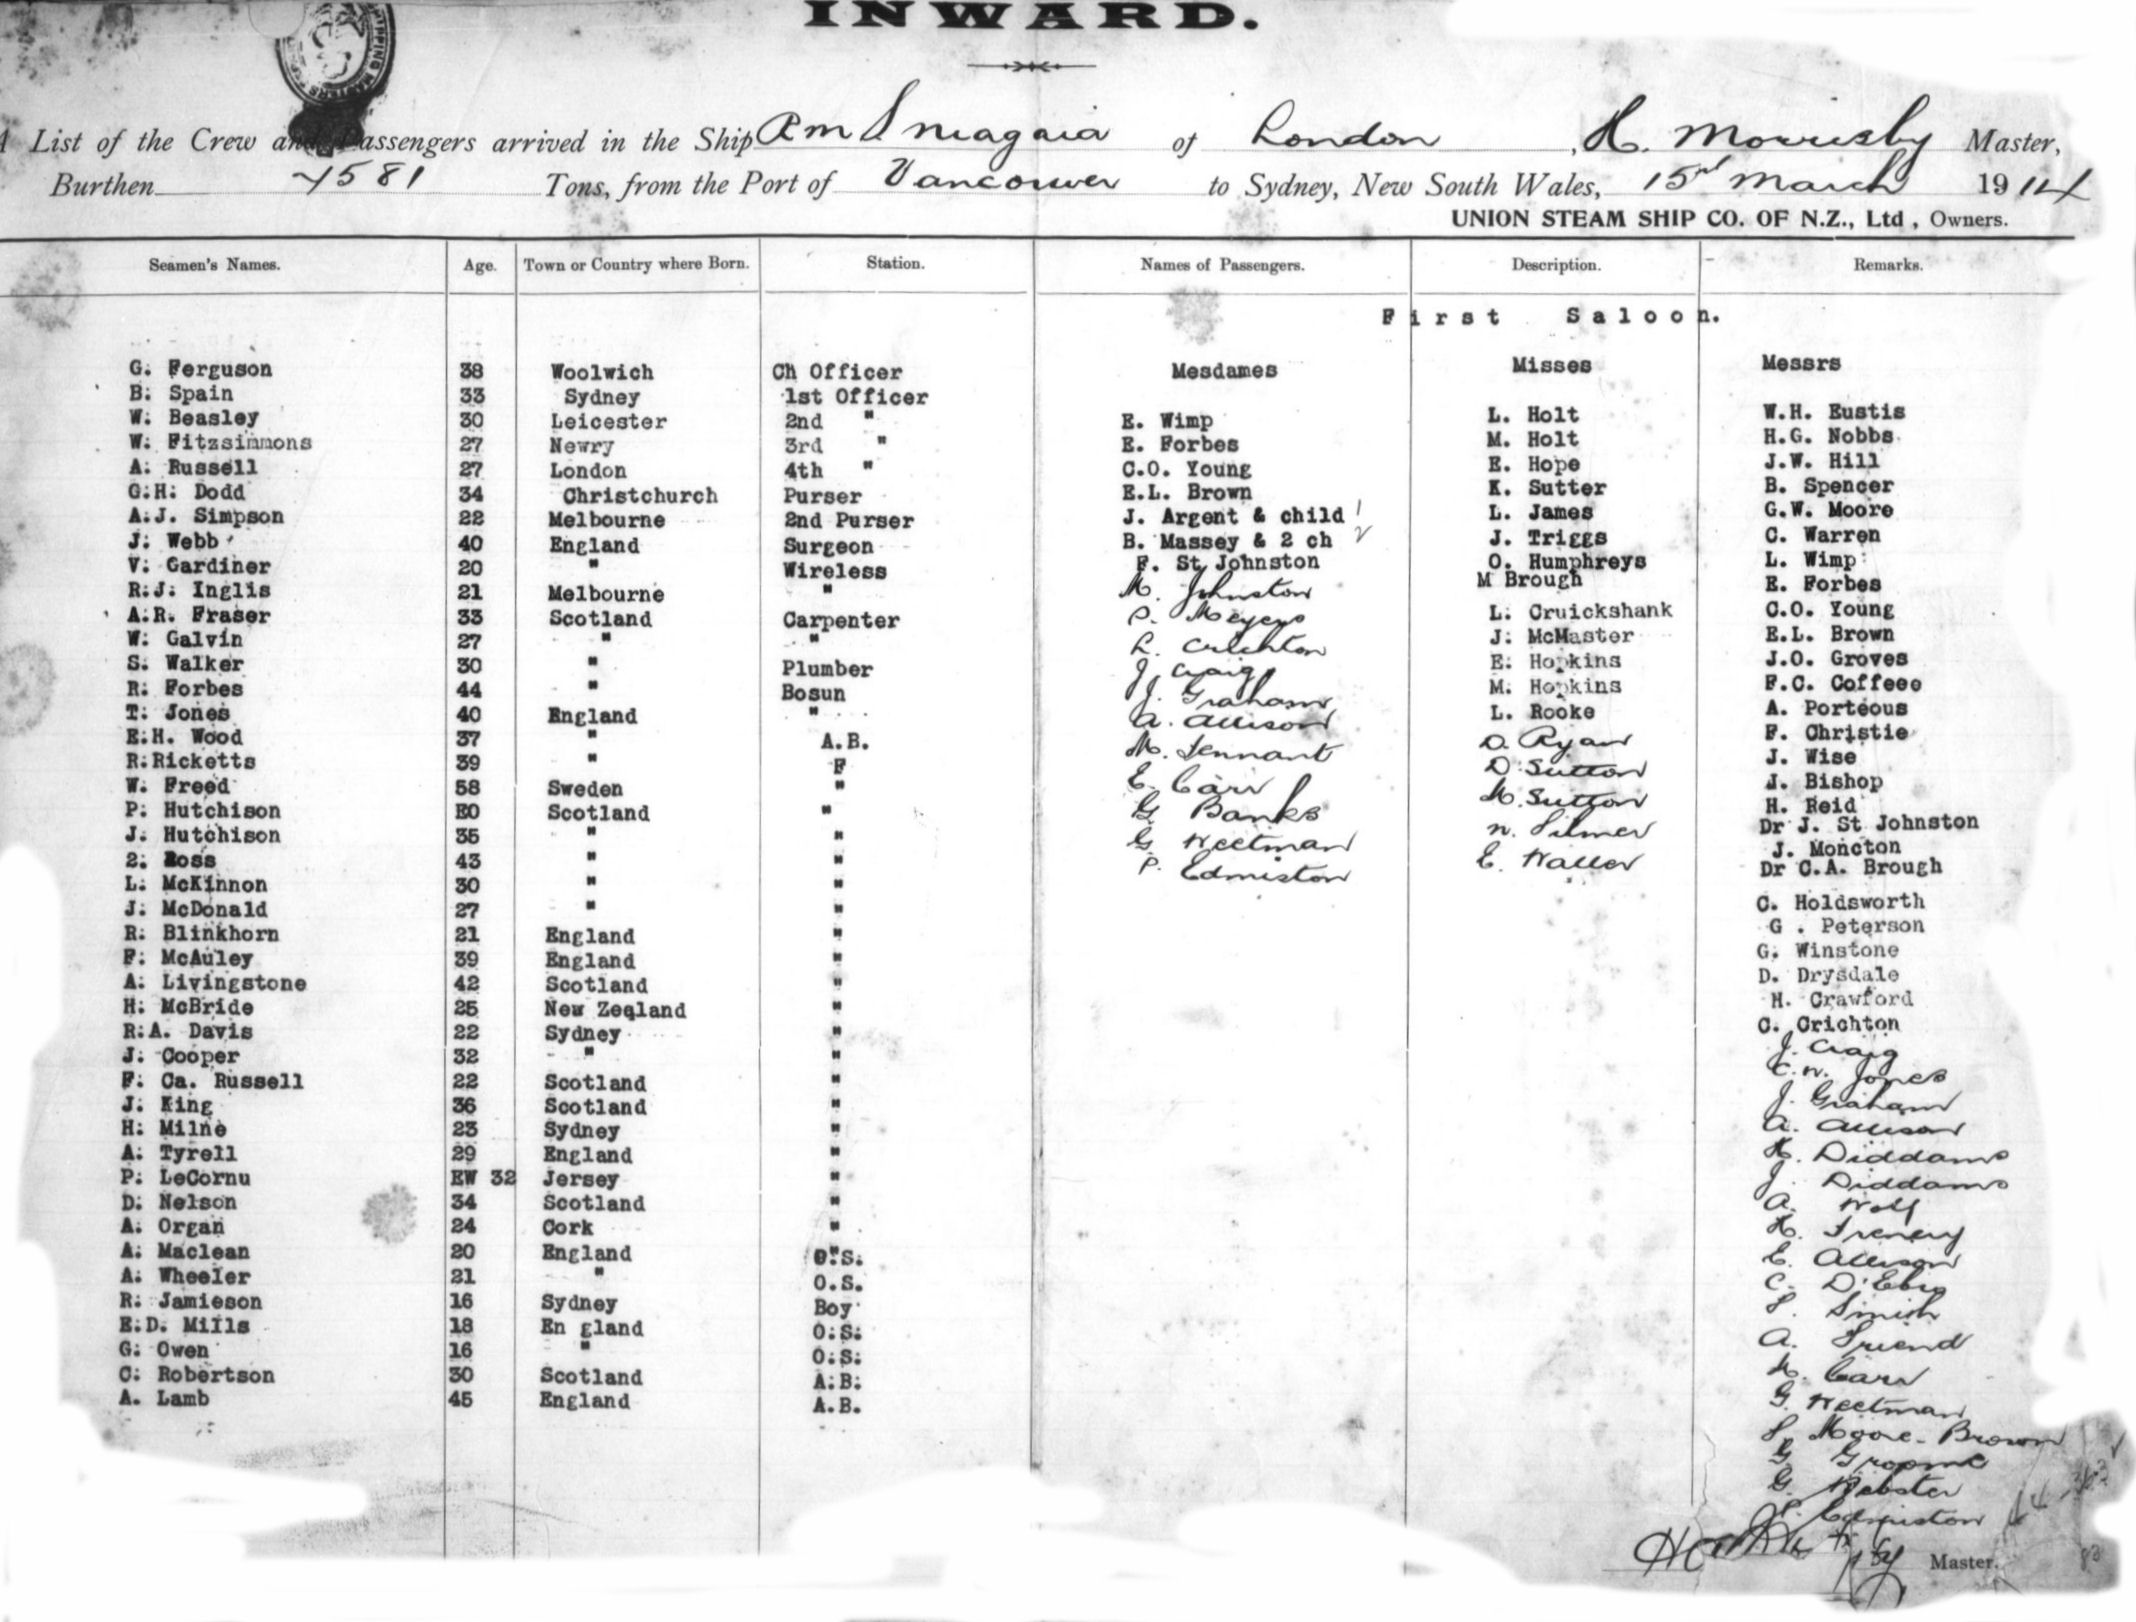 INWARD.
A List of the Crew and Passengers arrived in the Ship RMS Niagara of London, H. Morrisby Master,
Burthen 7581 Tons, from the Port of Vancouver to Sydney, New South Wales, 15th March 1914
UNION STEAM SHIP CO. OF N.Z., Ltd, Owners.
Seamen's Names. Age. Town or Country where Born. Station. Names of Passengers. Description. Remarks.
First Saloon.
G. Ferguson 38 Woolwich Ch Officer
B. Spain 33 Sydney 1st Officer
W. Beasley 30 Leicester 2nd "
W. Fitzsimmons 27 Newry 3rd "
A. Russell 27 London 4th "
G.H. Dodd 34 Christchurch Purser
A.J. Simpson 22 Melbourne 2nd Purser
J. Webb 40 England Surgeon
V. Gardiner 20 " Wireless
R.J. Inglis 21 Melbourne "
A.R. Fraser 33 Scotland Carpenter
W. Galvin 27 " "
S. Walker 30 " Plumber
R. Forbes 44 " Bosun
T. Jones 40 England "
E.H. Wood 37 " A.B.
R.Ricketts 39 " F
W. Freed 58 Sweden "
P. Hutchison E0 Scotland "
J. Hutchison 35 " "
2. Ross 43 " "
L. McKinnon 30 " "
J. McDonald 27 " "
R. Blinkhorn 21 England "
F. McAuley 39 England "
A. Livingstone 42 Scotland "
H. McBride 25 New Zeqland "
R.A. Davis 22 Sydney "
J. Cooper 32 " "
F. Ca. Russell 22 Scotland "
J. King 36 Scotland "
H. Milne 23 Sydney "
A. Tyrell 29 England "
P. LeCornu EW 32 Jersey "
D. Nelson 34 Scotland "
A. Organ 24 Cork "
A. Maclean 20 England O.S.
A. Wheeler 21 " O.S.
R. Jamieson 16 Sydney Boy
E.D. Mills 18 En gland O.S.
G. Owen 16 " O.S.
C. Robertson 30 Scotland A.B.
A. Lamb 45 England A.B.
Mesdames
E. Wimp
E. Forbes
C.O. Young
E.L. Brown
J. Argent & child 1
B. Massey & 2 ch 2
F. St Johnston
M. Johnston
S. Meyers
L. Crichton
J. Craig
J. Graham
A. Allison
M. Tennant
E. Carr
G. Banks
G. Weetman
P. Edmiston
Misses
L. Holt
M. Holt
E. Hope
K. Sutter
L. James
J. Triggs
O. Humphreys
M Brough
L. Cruickshank
J. McMaster
E. Hopkins
M. Hopkins
L. Rooke
D. Ryan
D. Sutton
M. Sutton
N. Filmer
E. Waller
Messrs
W.H. Eustis
H.G. Nobbs
J.W. Hill
B. Spencer
G.W. Moore
C. Warren
L. Wimp
E. Forbes
C.O. Young
E.L. Brown
J.O. Groves
F.C. Coffeee
A. Porteous
F. Christie
J. Wise
J. Bishop
H. Reid
Dr J. St Johnston
J. Moncton
Dr C.A. Brough
C. Holdsworth
G . Peterson
G. Winstone
D. Drysdale
H. Crawford
C. Crichton
J. Craig
C.W. Jones
J. Graham
A. Allison
H. Diddams
J. Diddams
A. Wolf
H. Trenery
E. Allison
C.
S. Smith
A. Friend
M. Carr
G. Weetman
S. Moore-Brown
G. Groome
G. Webster
P. Edmiston
Master.